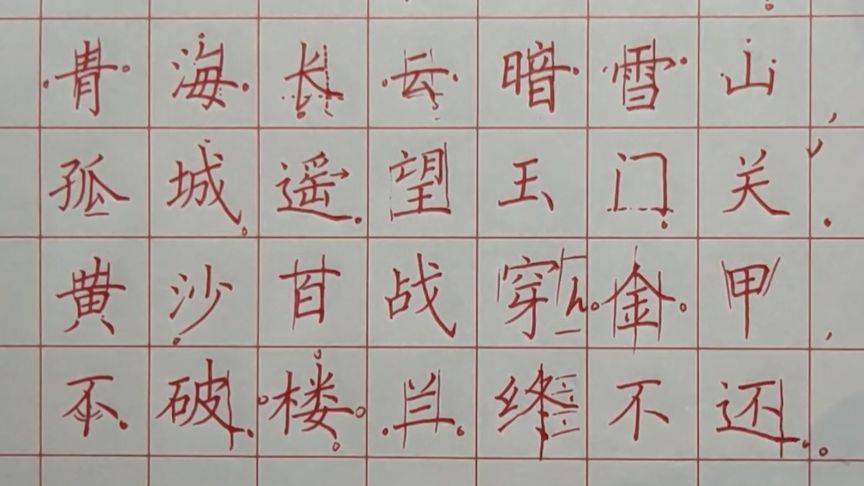 青海长云暗雪山，
孤城遥望玉门关。
黄沙百战穿金甲，
不破楼兰终不还。